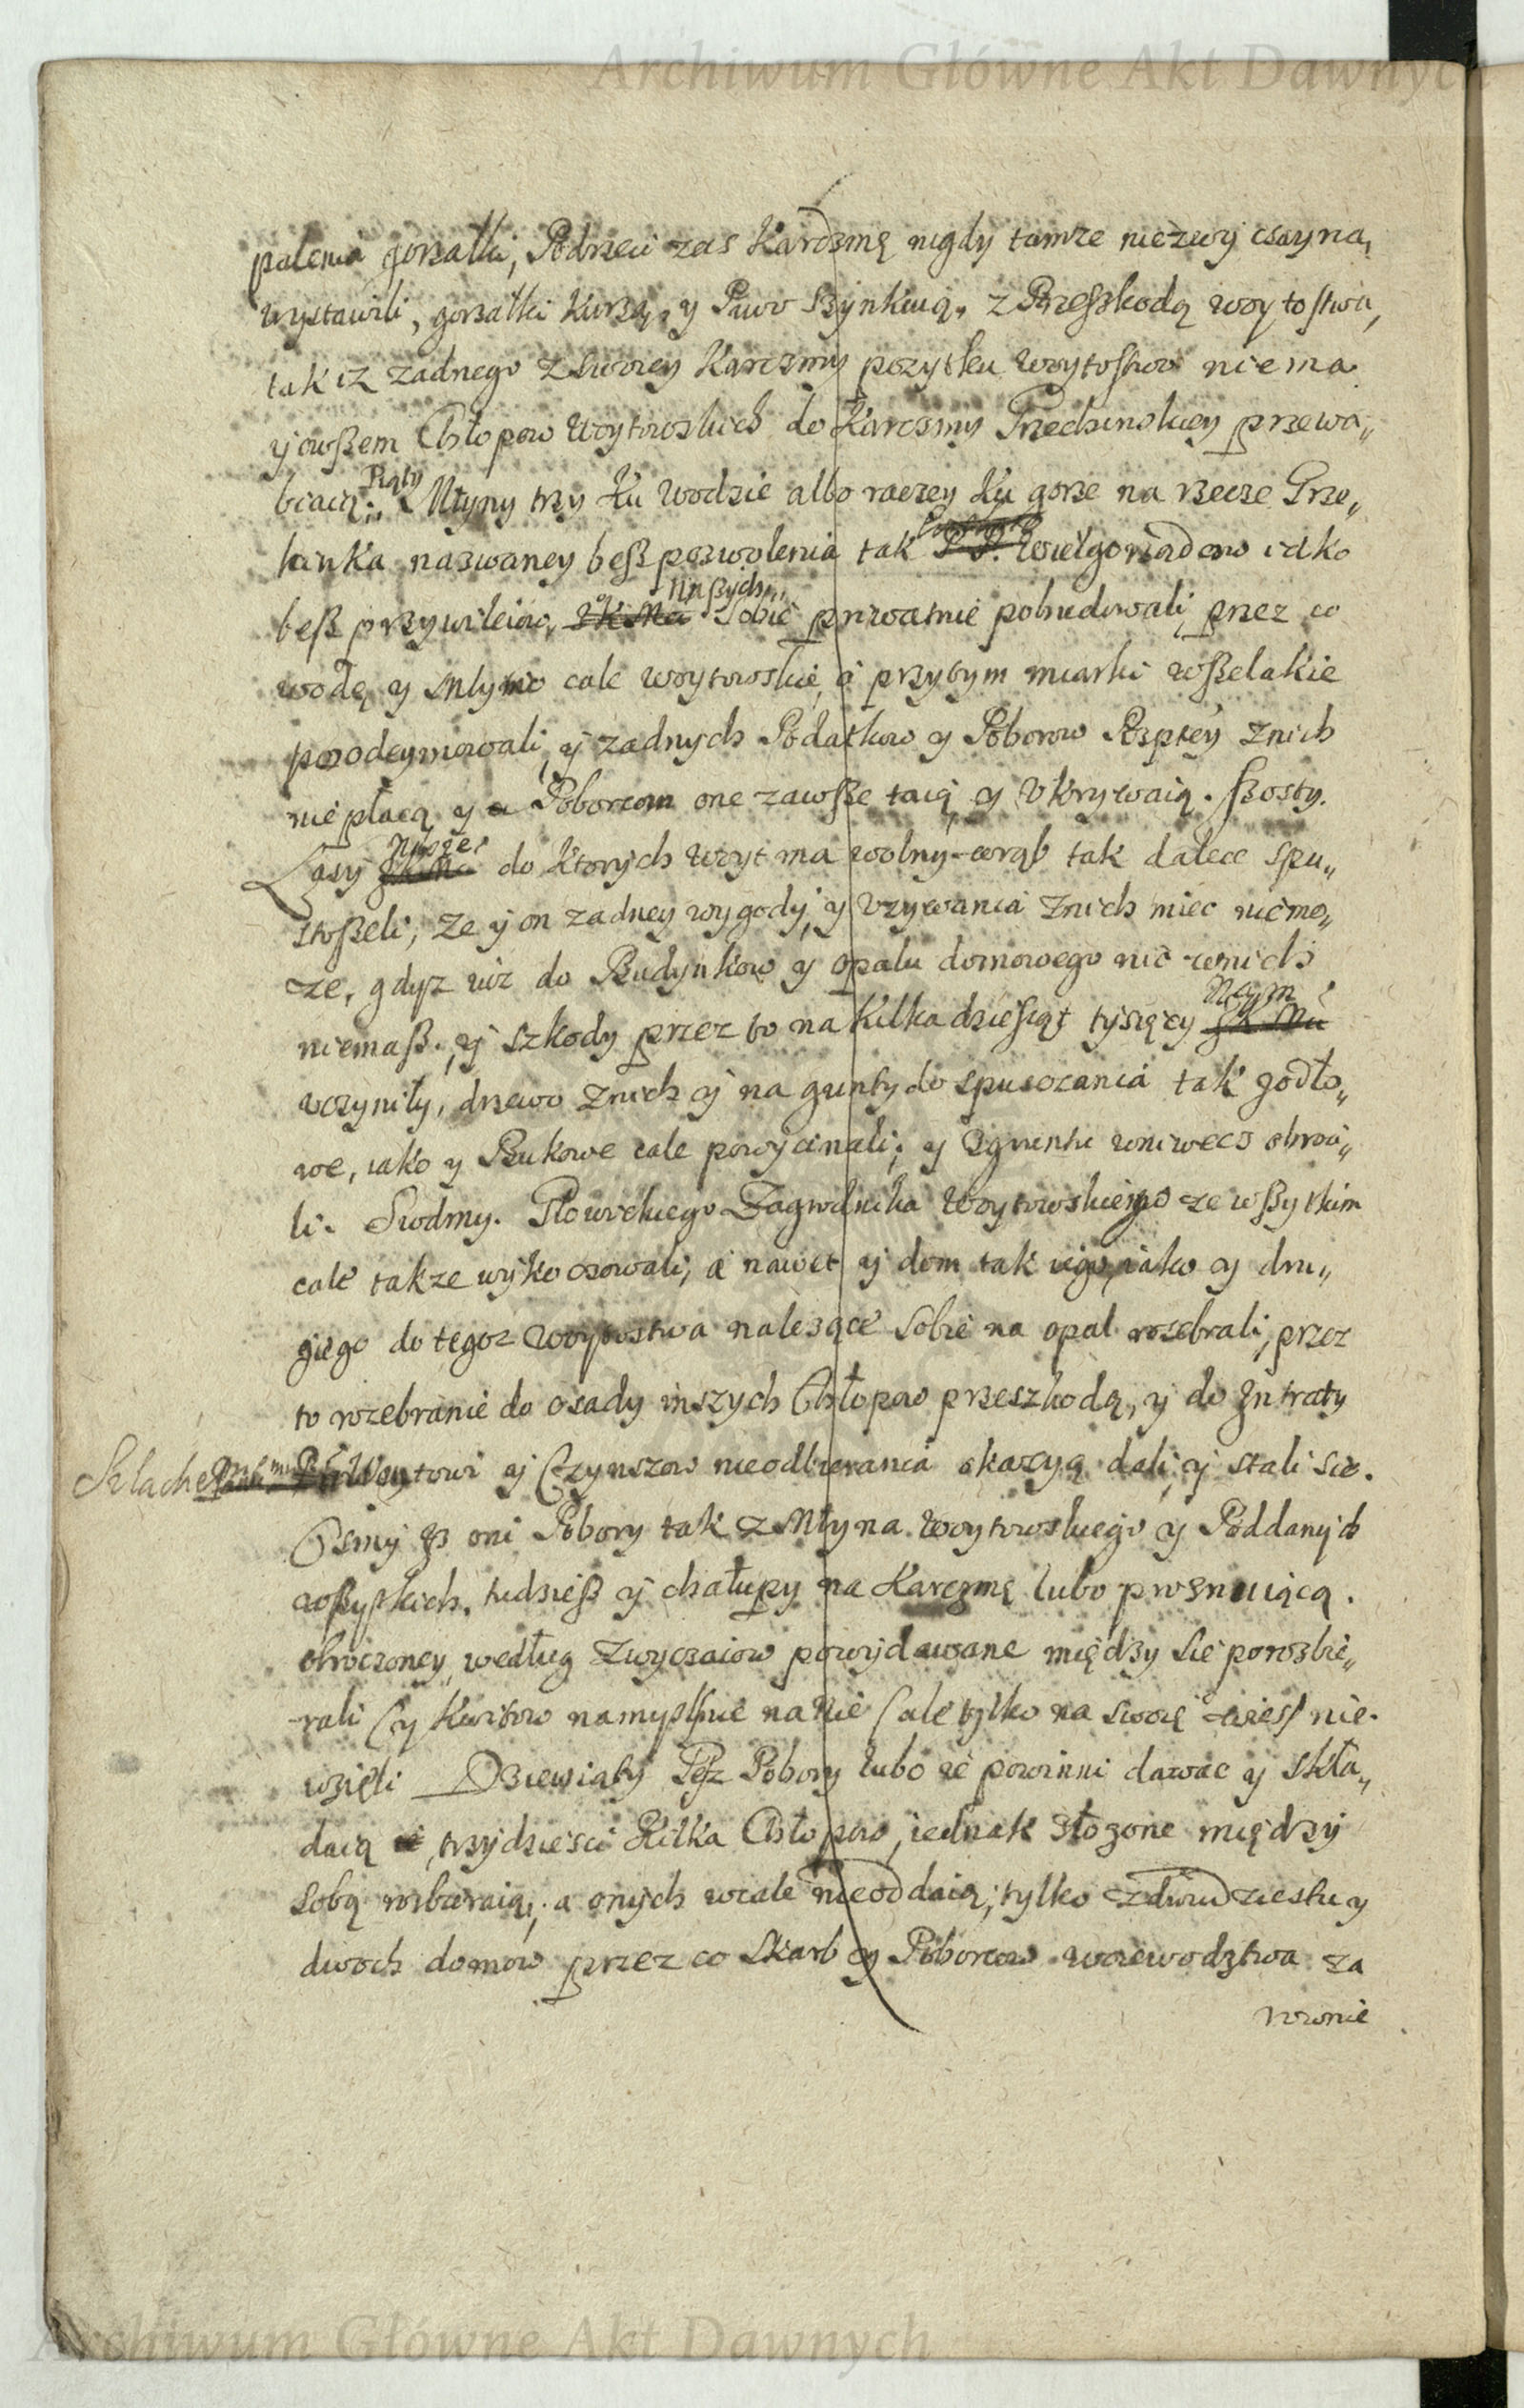 Archiwum Główne Akt Dawnych
palenia gorzałki, Podrzeci zas Karczmę nigdy tamze niezwyczayną,
wystawili, gorzałki kurzą, y Piwo szynkuią, z Przeszkodą woytostwa,
tak iz zadnego z swoiey Karczmy pozytku woytostwo niema
y owszem Chłopow Woytowskich do Karczmy Trzecinskiey przewa„
biaią. Piąty Młyny trzy ku wodzie albo raczey ku gorze na rzecze Grze„
banka nazwaney besz pozwolenia tak P. P. Wielgorządcow iako
besz przywileiow, JKMci Naszych sobie prywatnie pobudowali, przez co
wodę y Młyno cale woytowskie, á przytym miarki wszelakie
poodeymowali, y zadnych Podatkow y Poborow Rzptey z nich
nie płacą y Poborcom one zawsze taią y Vkrywaią. Szosty.
Lasy Nasze do ktorych Woyt ma wolny wrąb tak dalece spu„
stoszeli, ze y on zadney wygody, y Vzywania z nich miec niemo„
ze, gdysz iuz do Budynkow y opalu domowego nic w nich
niemasz. y szkody przez to na kilkadziesiąt tysięcy Nam JKMci
vczyniły, drzewo z nich y na gunty do spusczania tak Jodło„
we, iako y Bukowe cale powycinali, y zgruntu wniwecz obroci„
li. Siodmy. Płowickiego Zagrodnika Woytowskiego ze wszytkim
cale takze wykorzowali, á nawet y dom tak iego, iako y dru„
giego do tegoz Woytostwa nalezące sobie na opal rozebrali, przez
to rozebranie do osady inszych Chłopow przeszkodą, y do Intraty
Szlache Woytowi y Czynszow nieodbierania okazyą dali, y stali sie.
Osmy Jz oni Pobory tak z Młyna Woytowskiego y Poddanych
wszystkich, tudziesz y chałupy na Karczmę lubo proznuiącą.
obroconey według zwyczaiow powydawane między sie porozbie„
rali (y kwitow namyslnie na nie (ale tylko na swoię wies) nie.
wzięli Dziewiąty Tesz Pobory lubo ie powinni dawac y skła„
daią trzydziesci kilka Chłopow, iednak złozone między
sobą rozbieraią, a onych wcale nieoddaią, tylko zdwudziestu y
dwoch domow przez co Skarb y Poborcow woiewodztwa za
wonie
Archiwum Główne Akt Dawnych